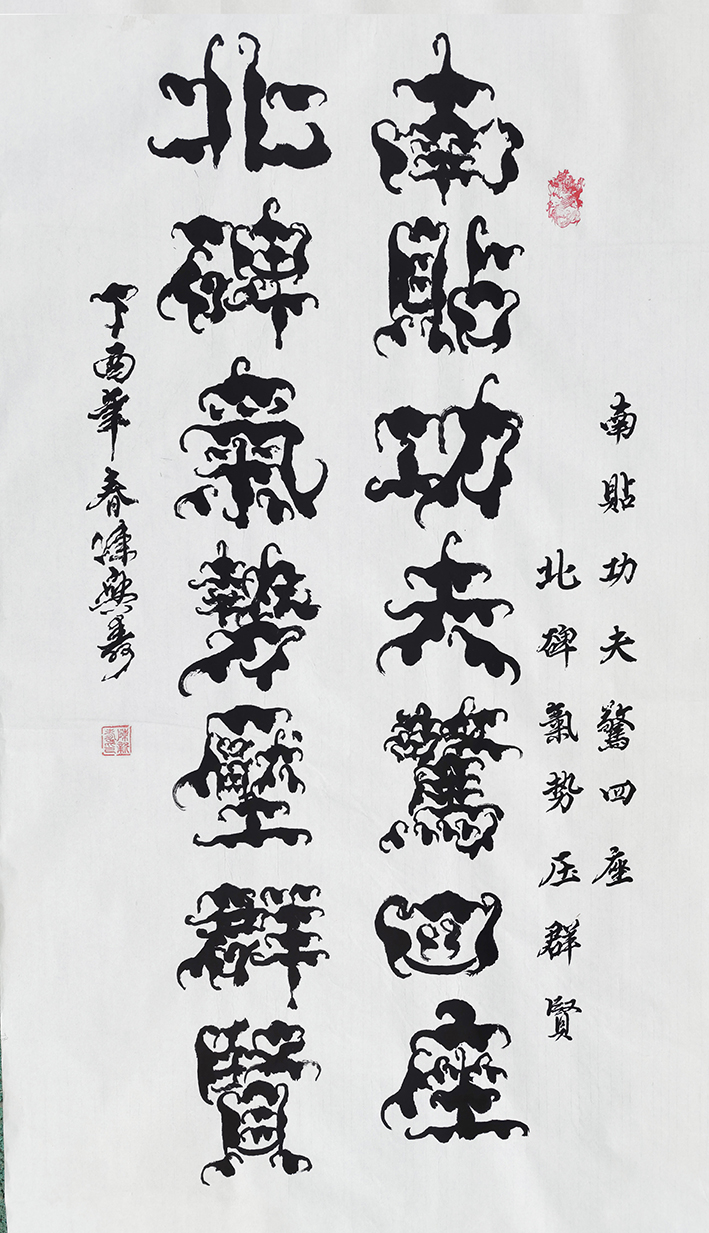 南貼功夫驚四座
北碑氣势压群賢
南貼功夫驚四座
北碑氣勢壓群賢
丁酉年春陳